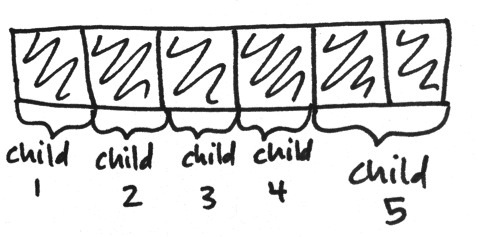 child
1
child
2
child
3
child
4
child
5